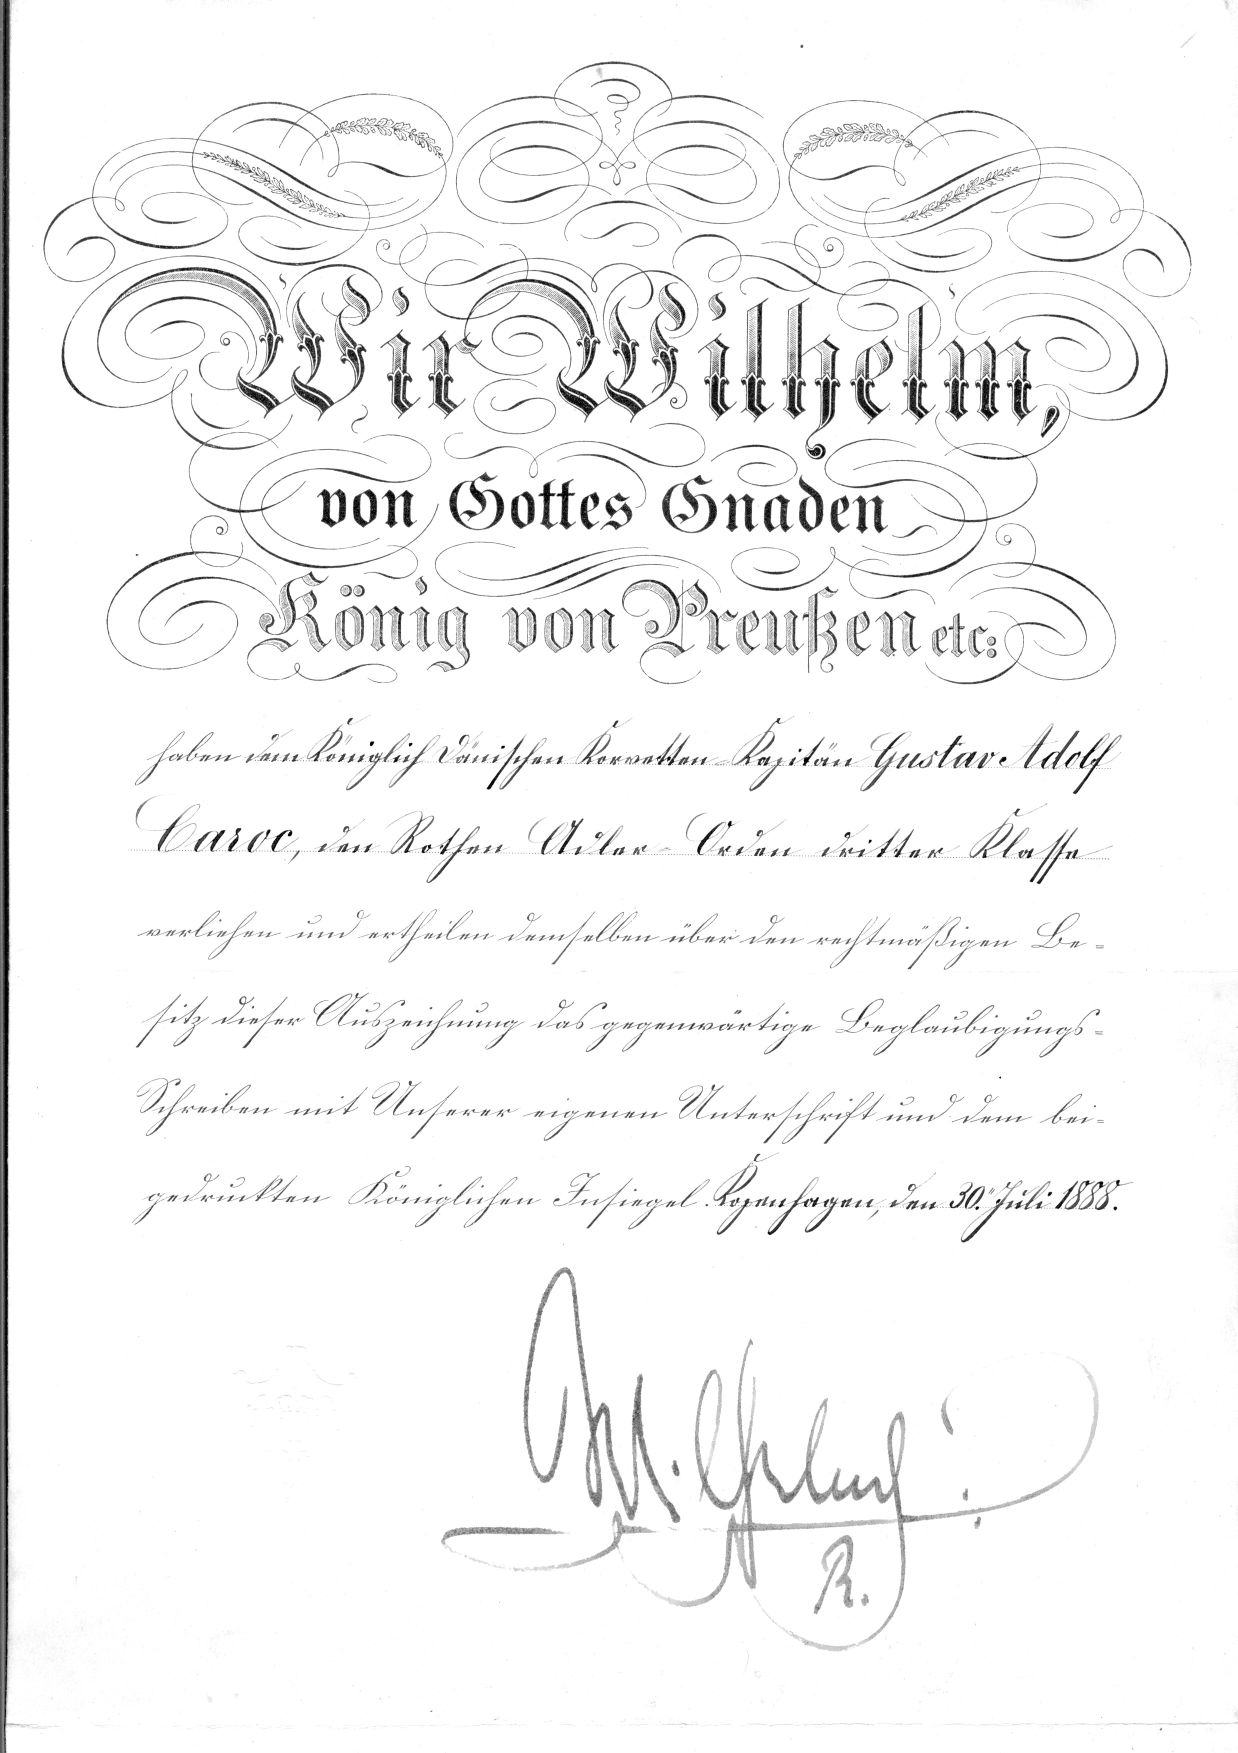 Wir Wilhelm,
von Gottes Gnaden
König von Preußen etc:
haben dem Königlich Dänischen Korvetten-Kapitän Gustav Adolf
Caroc, den Rothen Adler-Orden dritter Klasse
verliehen und ertheilen demselben über den rechtmäßigen Be-
sitz dieser Auszeichnung das gegenwärtige Beglaubigungs-
Schreiben mit Unserer eigenen Unterschrift und dem bei-
gedruckten Königlichen Insiegel. Kopenhagen, den 30. Juli 1888.
Wilhelm
R.